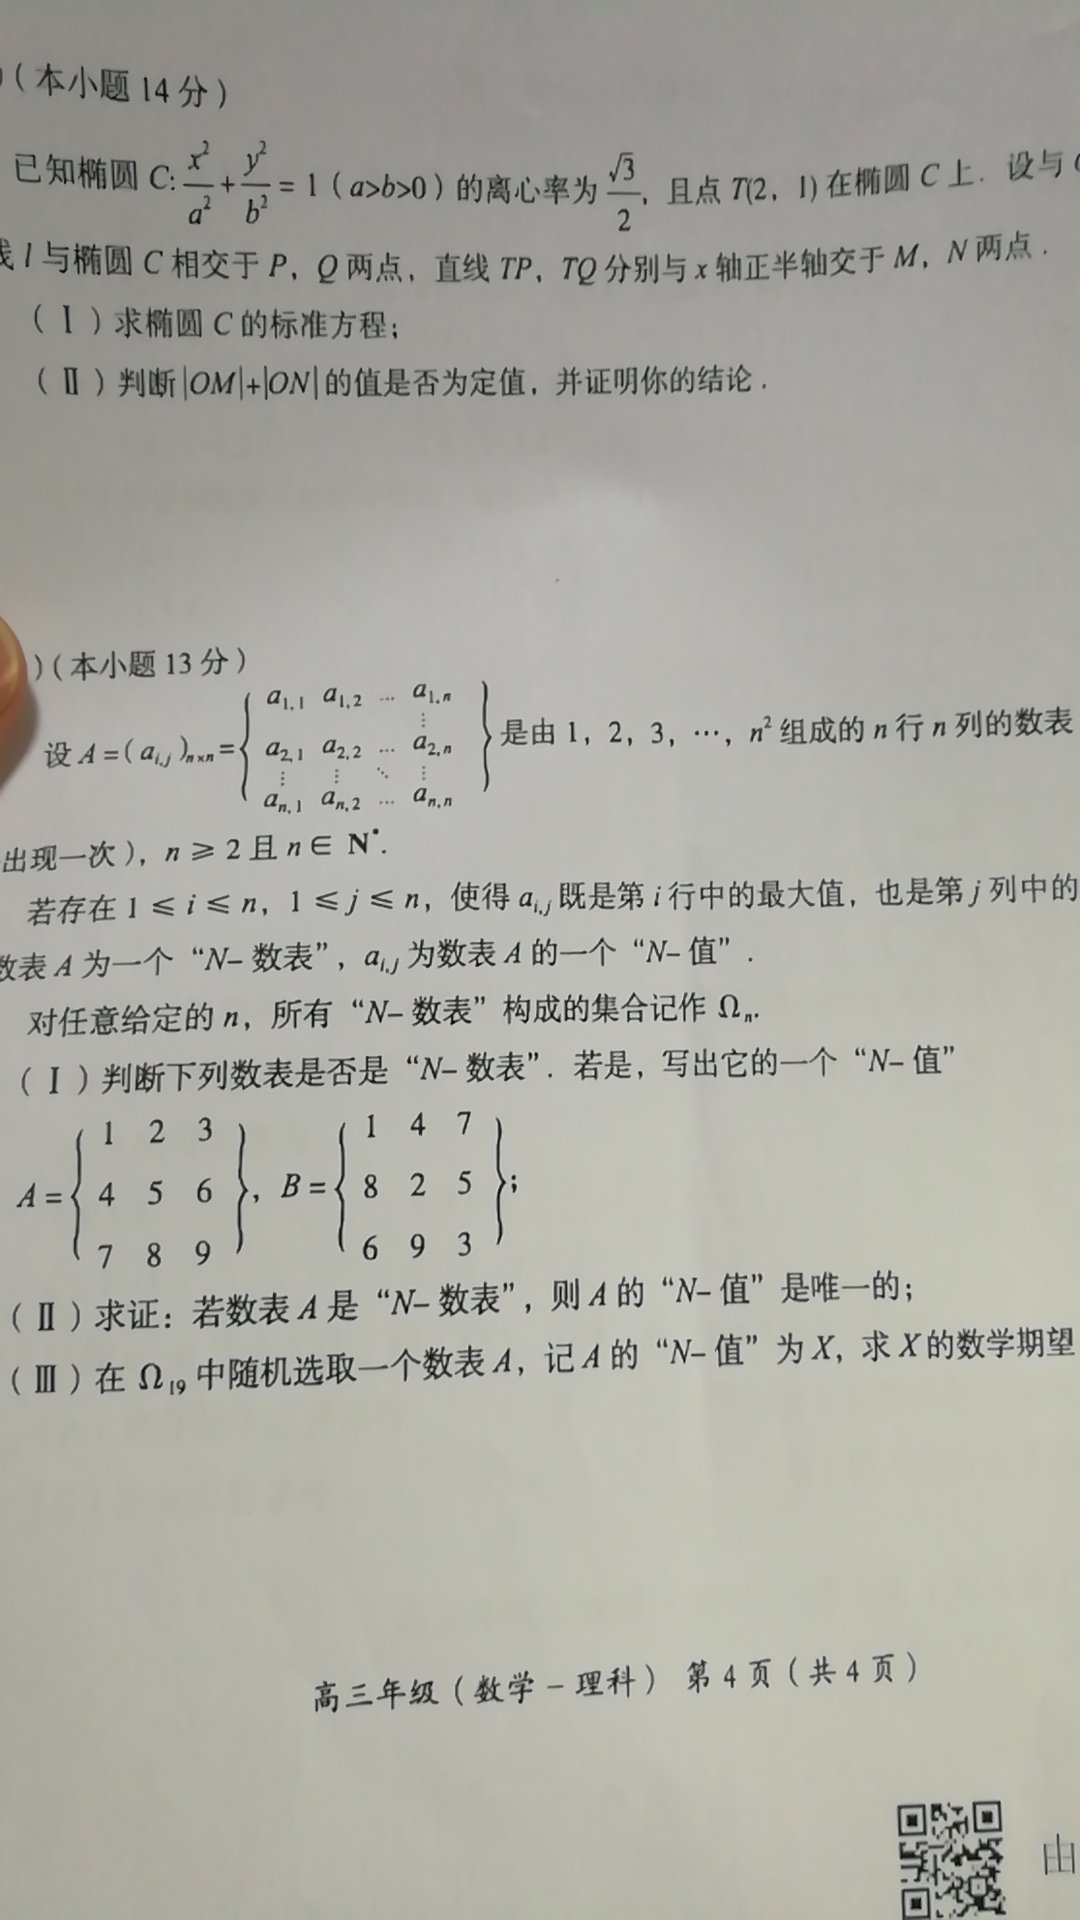 ）（本小题 14 分）
已知椭圆 C: x²/a² + y²/b² = 1（a>b>0）的离心率为 √3/2，且点 T(2，1) 在椭圆 C 上．设与
线 l 与椭圆 C 相交于 P，Q 两点，直线 TP，TQ 分别与 x 轴正半轴交于 M，N 两点．
（Ⅰ）求椭圆 C 的标准方程；
（Ⅱ）判断 |OM|+|ON| 的值是否为定值，并证明你的结论．
）（本小题 13 分）
设 A =( a_{i,j} )_{n×n} = { a_{1,1} a_{1,2} … a_{1,n} ⋮ a_{2,1} a_{2,2} … a_{2,n} ⋮ ⋮ ⋱ ⋮ a_{n,1} a_{n,2} … a_{n,n} } 是由 1，2，3，…，n² 组成的 n 行 n 列的数表
出现一次），n ⩾ 2 且 n ∈ N*．
若存在 1 ⩽ i ⩽ n，1 ⩽ j ⩽ n，使得 a_{i,j} 既是第 i 行中的最大值，也是第 j 列中的
数表 A 为一个“N– 数表”，a_{i,j} 为数表 A 的一个“N– 值”．
对任意给定的 n，所有“N– 数表”构成的集合记作 Ω_n．
（Ⅰ）判断下列数表是否是“N– 数表”．若是，写出它的一个“N– 值”
A = { 1 2 3 4 5 6 7 8 9 }，B = { 1 4 7 8 2 5 6 9 3 }；
（Ⅱ）求证：若数表 A 是“N– 数表”，则 A 的“N– 值”是唯一的；
（Ⅲ）在 Ω_{19} 中随机选取一个数表 A，记 A 的“N– 值”为 X，求 X 的数学期望
高三年级（数学 – 理科） 第 4 页（共 4 页）
由